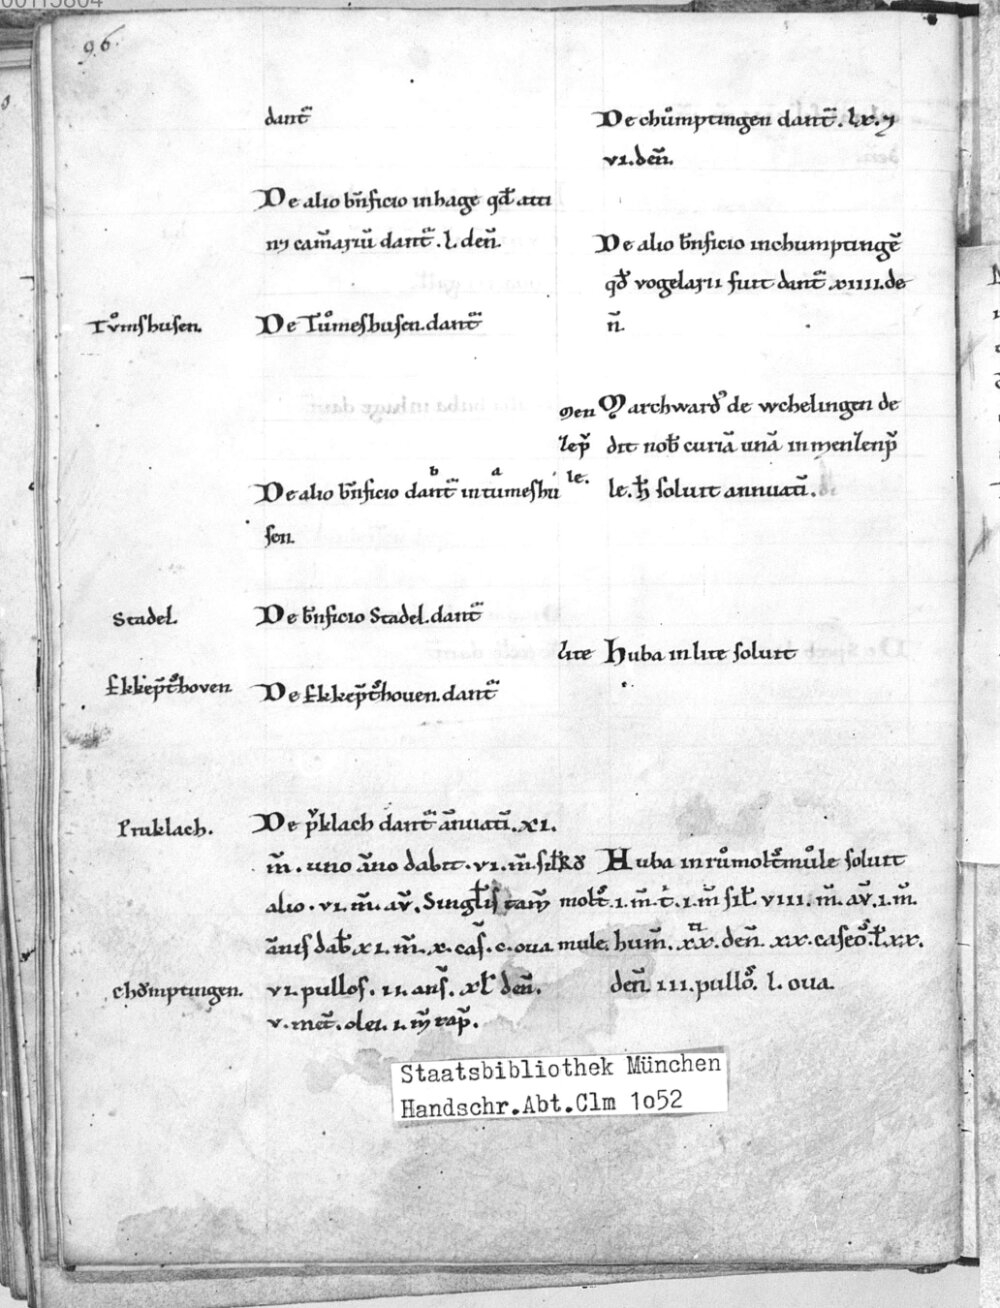 96.
dant᷑
De alio bn̄ficio inhage qd̄ atti
nꝫ cam̄ariū dant᷑. l. den̄.
Tv̊mshusen.
De Tům̊eshusen. dant᷑
De alio bn̄ficio dant᷑ intumeshu
b a
sen.
Stadel.
De bn̄ficio Stadel. dant᷑
Ekkep̄t̄hoven
De Ekkep̄t̄houen. dant᷑
Pruklach.
De pͮklach dant᷑ ān̄uati᷑. xi.
m̄. uno āno dabit. vi. m̄. 
alio. vi. m̄. av̄. Singl̄is
ānis dab̄t xi. m̄. x. cas̄. c. oua
chǒmptingen.
vi. pullos. ii. ans̄. xl den̄.
v. met̄. olei. i. m̄ rap̄.
De chům̊ptingen dant᷑. lx. ⁊
vi. den̄.
De alio bn̄ficio inchumptingē
qd̄ vogelarii fuit dant᷑. xviiii. de
n̄.
Men
lep̄
le.
Marchward᷑ de wchelingen de
dit nob̄ curiā unā inmenlenp̄
le. ħ soluit annuati᷑.
lite
Huba in lite soluit
Huba inrům̊olt̄mům̊le soluit
molt̄. i. m̄. t̄. i. m̄ sil̄. viii. m̄. av̄. i. m̄.
mule. hum̄. xx. den̄. xx. caseo᷑. l̄. xx.
den̄ iii. pullo᷑. l. oua.
Staatsbibliothek München
Handschr.Abt.Clm 1o52